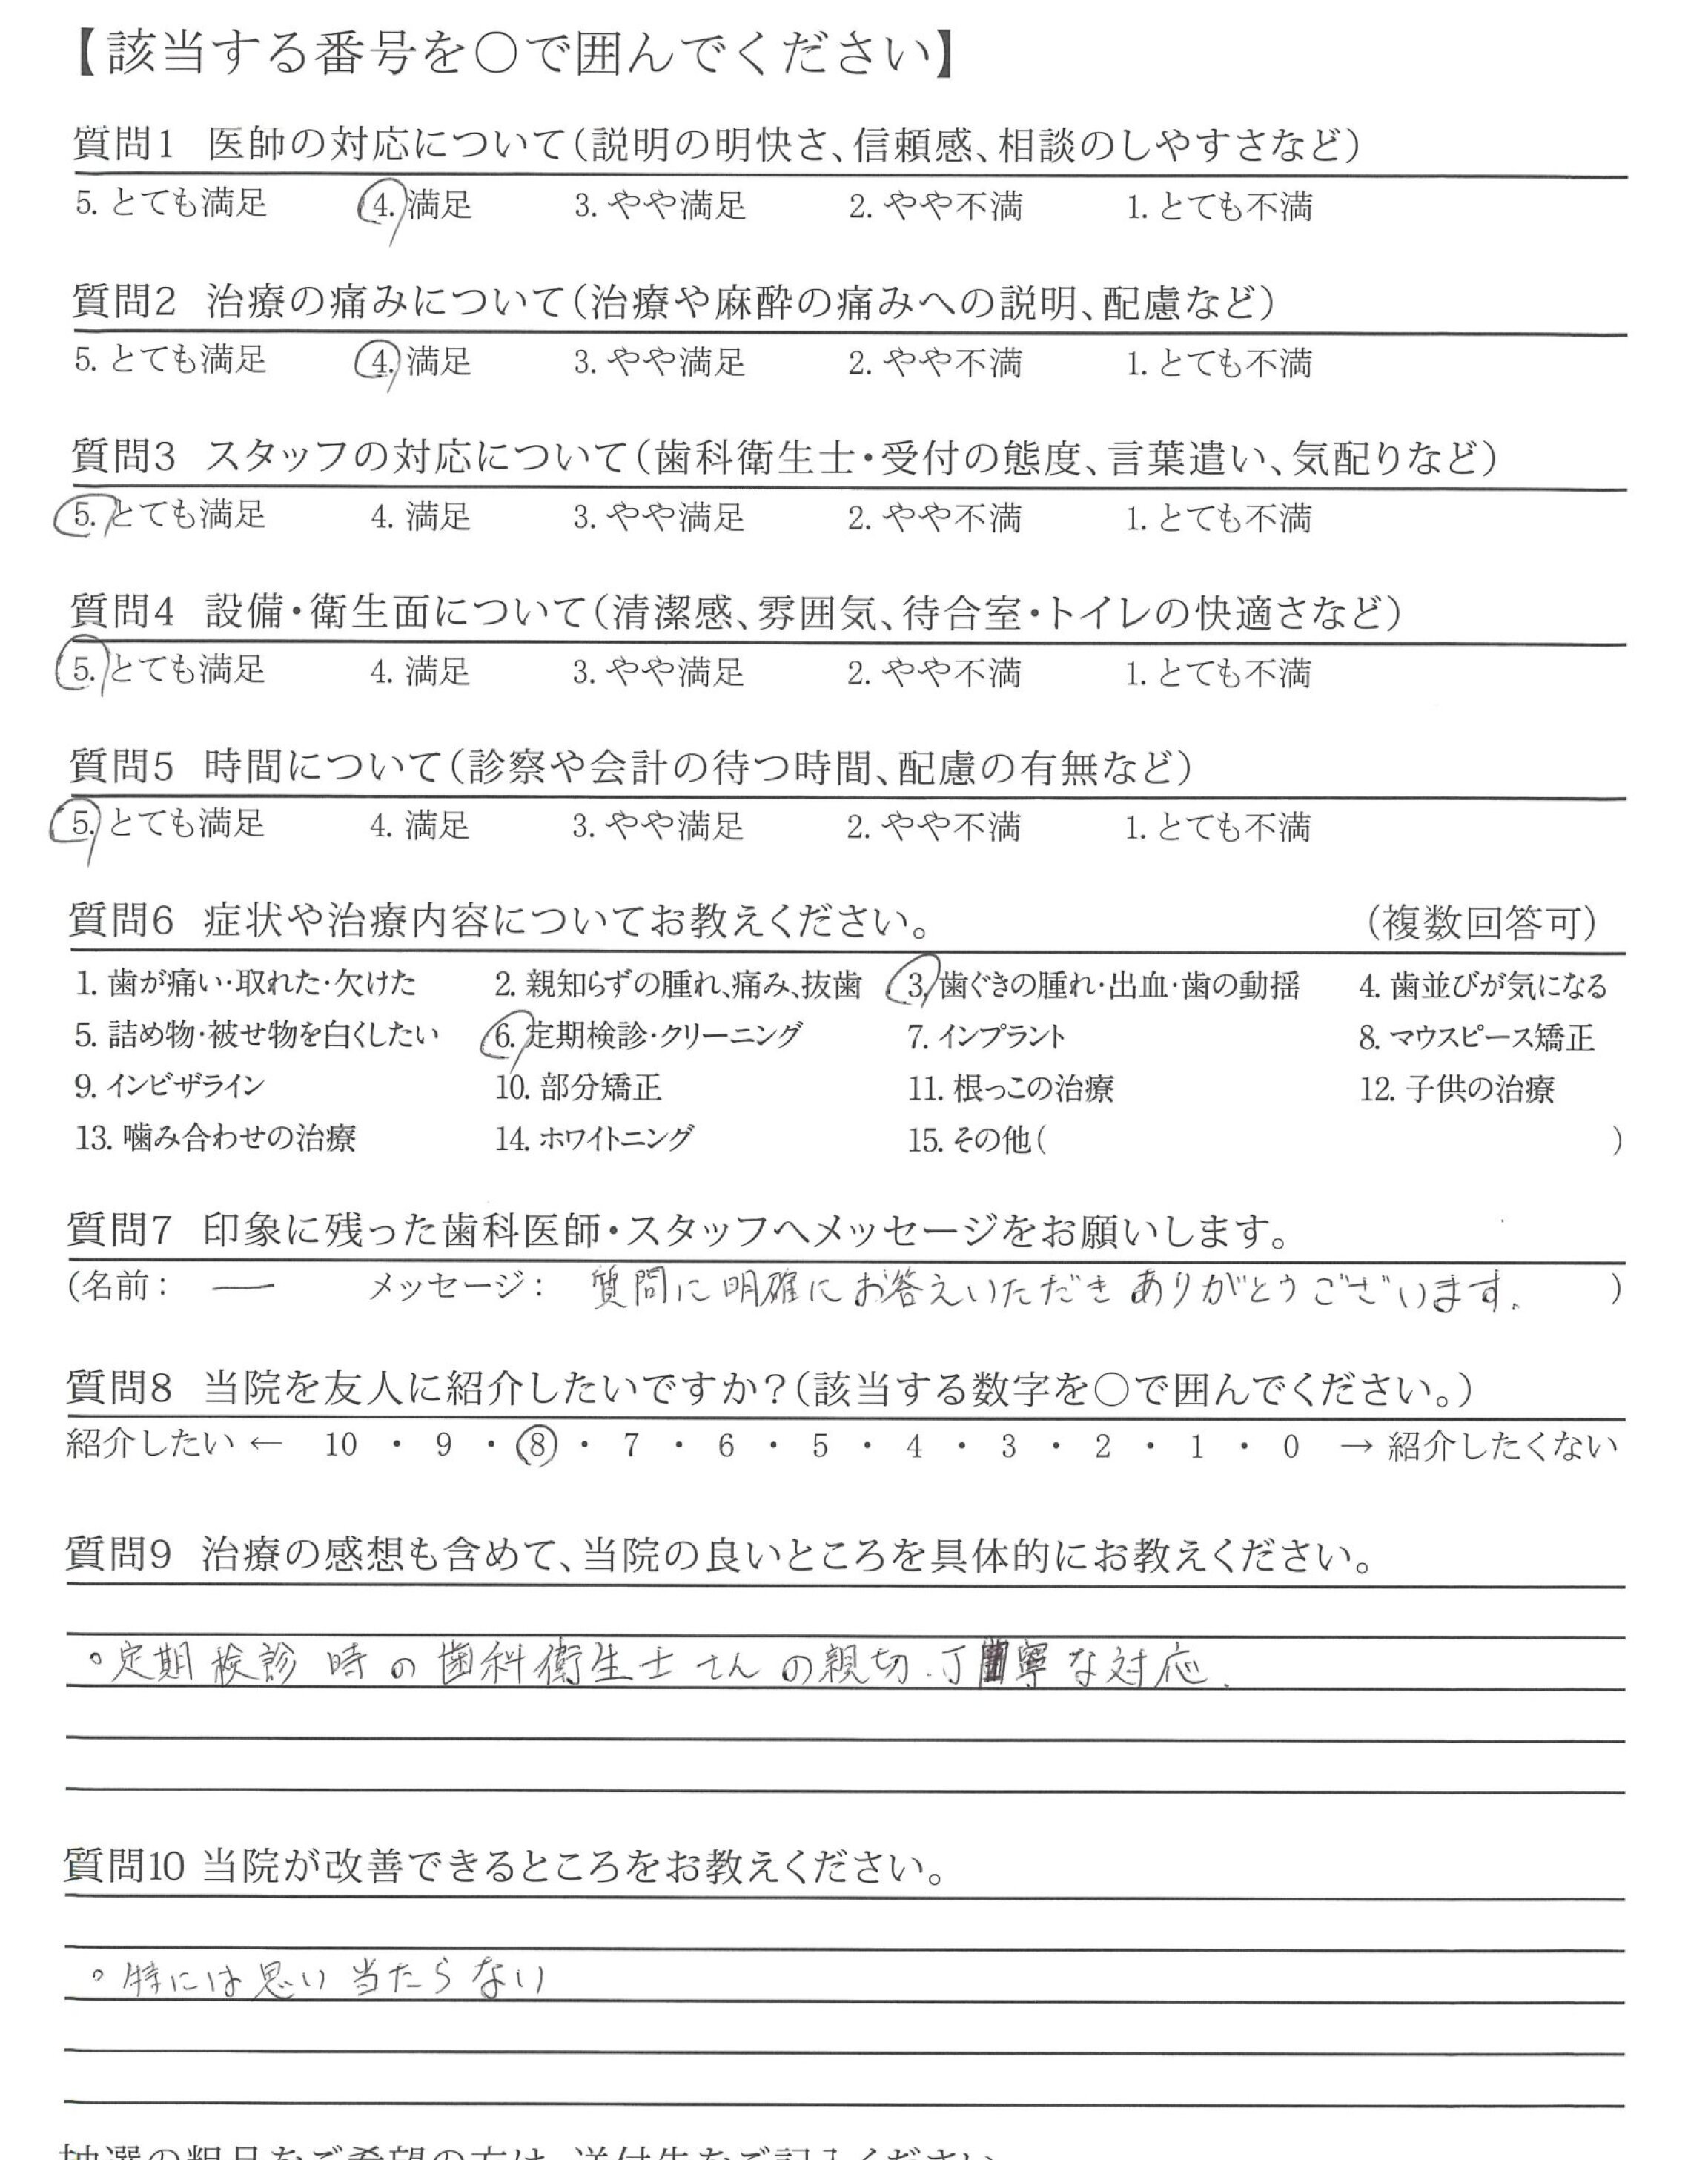 【該当する番号を○で囲んでください】
質問1 医師の対応について(説明の明快さ、信頼感、相談のしやすさなど)
5. とても満足 4. 満足 3. やや満足 2. やや不満 1. とても不満
質問2 治療の痛みについて(治療や麻酔の痛みへの説明、配慮など)
5. とても満足 4. 満足 3. やや満足 2. やや不満 1. とても不満
質問3 スタッフの対応について(歯科衛生士・受付の態度、言葉遣い、気配りなど)
5. とても満足 4. 満足 3. やや満足 2. やや不満 1. とても不満
質問4 設備・衛生面について(清潔感、雰囲気、待合室・トイレの快適さなど)
5. とても満足 4. 満足 3. やや満足 2. やや不満 1. とても不満
質問5 時間について(診察や会計の待つ時間、配慮の有無など)
5. とても満足 4. 満足 3. やや満足 2. やや不満 1. とても不満
質問6 症状や治療内容についてお教えください。 (複数回答可)
1. 歯が痛い・取れた・欠けた 2. 親知らずの腫れ、痛み、抜歯 3. 歯ぐきの腫れ・出血・歯の動揺 4. 歯並びが気になる
5. 詰め物・被せ物を白くしたい 6. 定期検診・クリーニング 7. インプラント 8. マウスピース矯正
9. インビザライン 10. 部分矯正 11. 根っこの治療 12. 子供の治療
13. 噛み合わせの治療 14. ホワイトニング 15. その他( )
質問7 印象に残った歯科医師・スタッフへメッセージをお願いします。
(名前: — メッセージ: 質問に明確にお答えいただきありがとうございます。 )
質問8 当院を友人に紹介したいですか?(該当する数字を○で囲んでください。)
紹介したい ← 10 ・ 9 ・ 8 ・ 7 ・ 6 ・ 5 ・ 4 ・ 3 ・ 2 ・ 1 ・ 0 → 紹介したくない
質問9 治療の感想も含めて、当院の良いところを具体的にお教えください。
。定期検診時の歯科衛生士さんの親切.丁寧な対応.
質問10 当院が改善できるところをお教えください。
。特には思い当たらない
抽選の粗品をご希望の方は、送付先をご記入ください